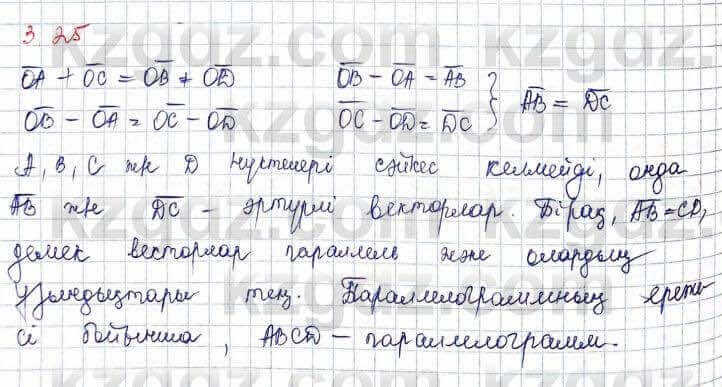 3 25
O̅A̅ + O̅C̅ = O̅B̅ + O̅D̅ O̅B̅ − O̅A̅ = A̅B̅
O̅B̅ − O̅A̅ = O̅C̅ − O̅D̅ O̅C̅ − O̅D̅ = D̅C̅ } A̅B̅ = D̅C̅
A, B, C және D нүктелері сәйкес келмейді, онда
A̅B̅ және D̅C̅ − әртүрлі векторлар. Бірақ, A̅B̅ = C̅D̅,
демек весторлар параллель және олардың
ұзындықтары тең. Параллелограммның ереже
сі бойынша, ABCD − параллелограмм.
kzgdz.com